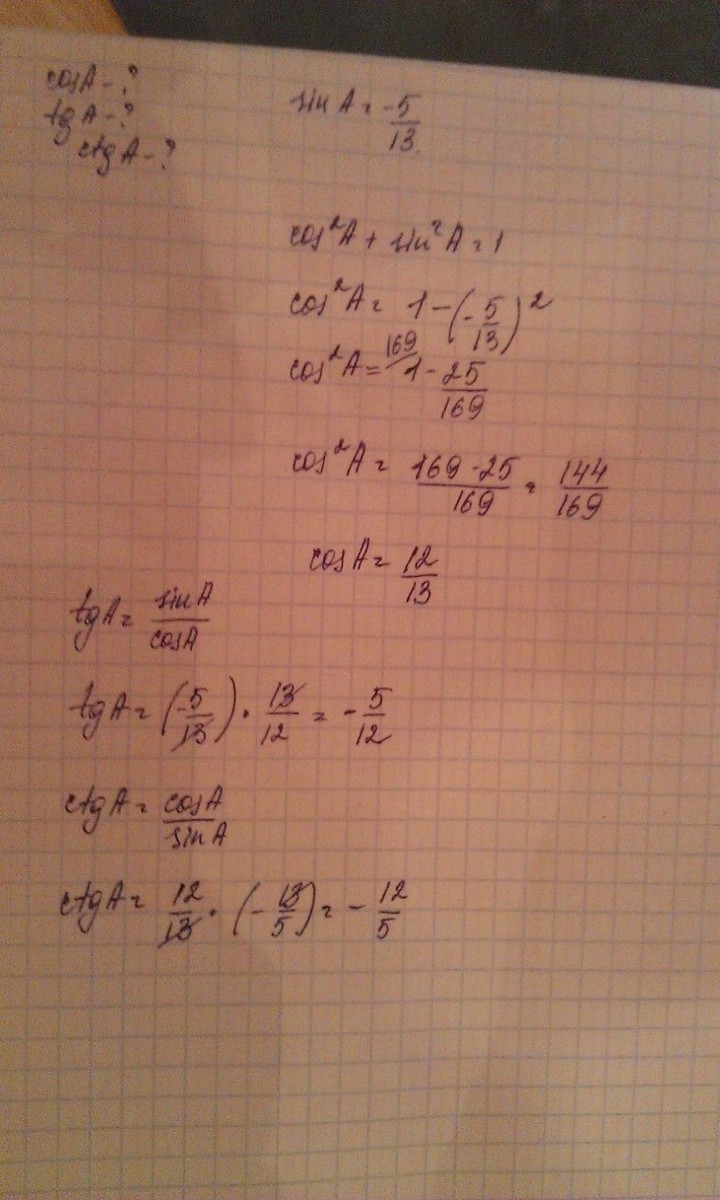 cosA - ?
tgA - ?
ctgA - ?
sinA = -5/13
cos²A + sin²A = 1
cos²A = 1 - (-5/13)²
cos²A = 169/ 1 - 25/169
cos²A = 169 - 25/169 = 144/169
cosA = 12/13
tgA = sinA/cosA
tgA = (-5/13) · 13/12 = -5/12
ctgA = cosA/sinA
ctgA = 12/13 · (-13/5) = -12/5